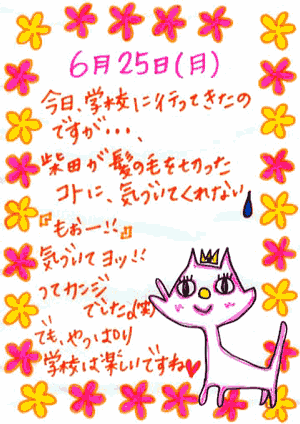 6月25日(月)
今日、学校に行ってきたの
ですが・・・、
柴田が髪の毛を切った
コトに、気づいてくれない
『もぉー!!』
気づいてヨッ!!
ってカンジ
でしたd(笑)
でも、やっぱり
学校は楽しいですね♥